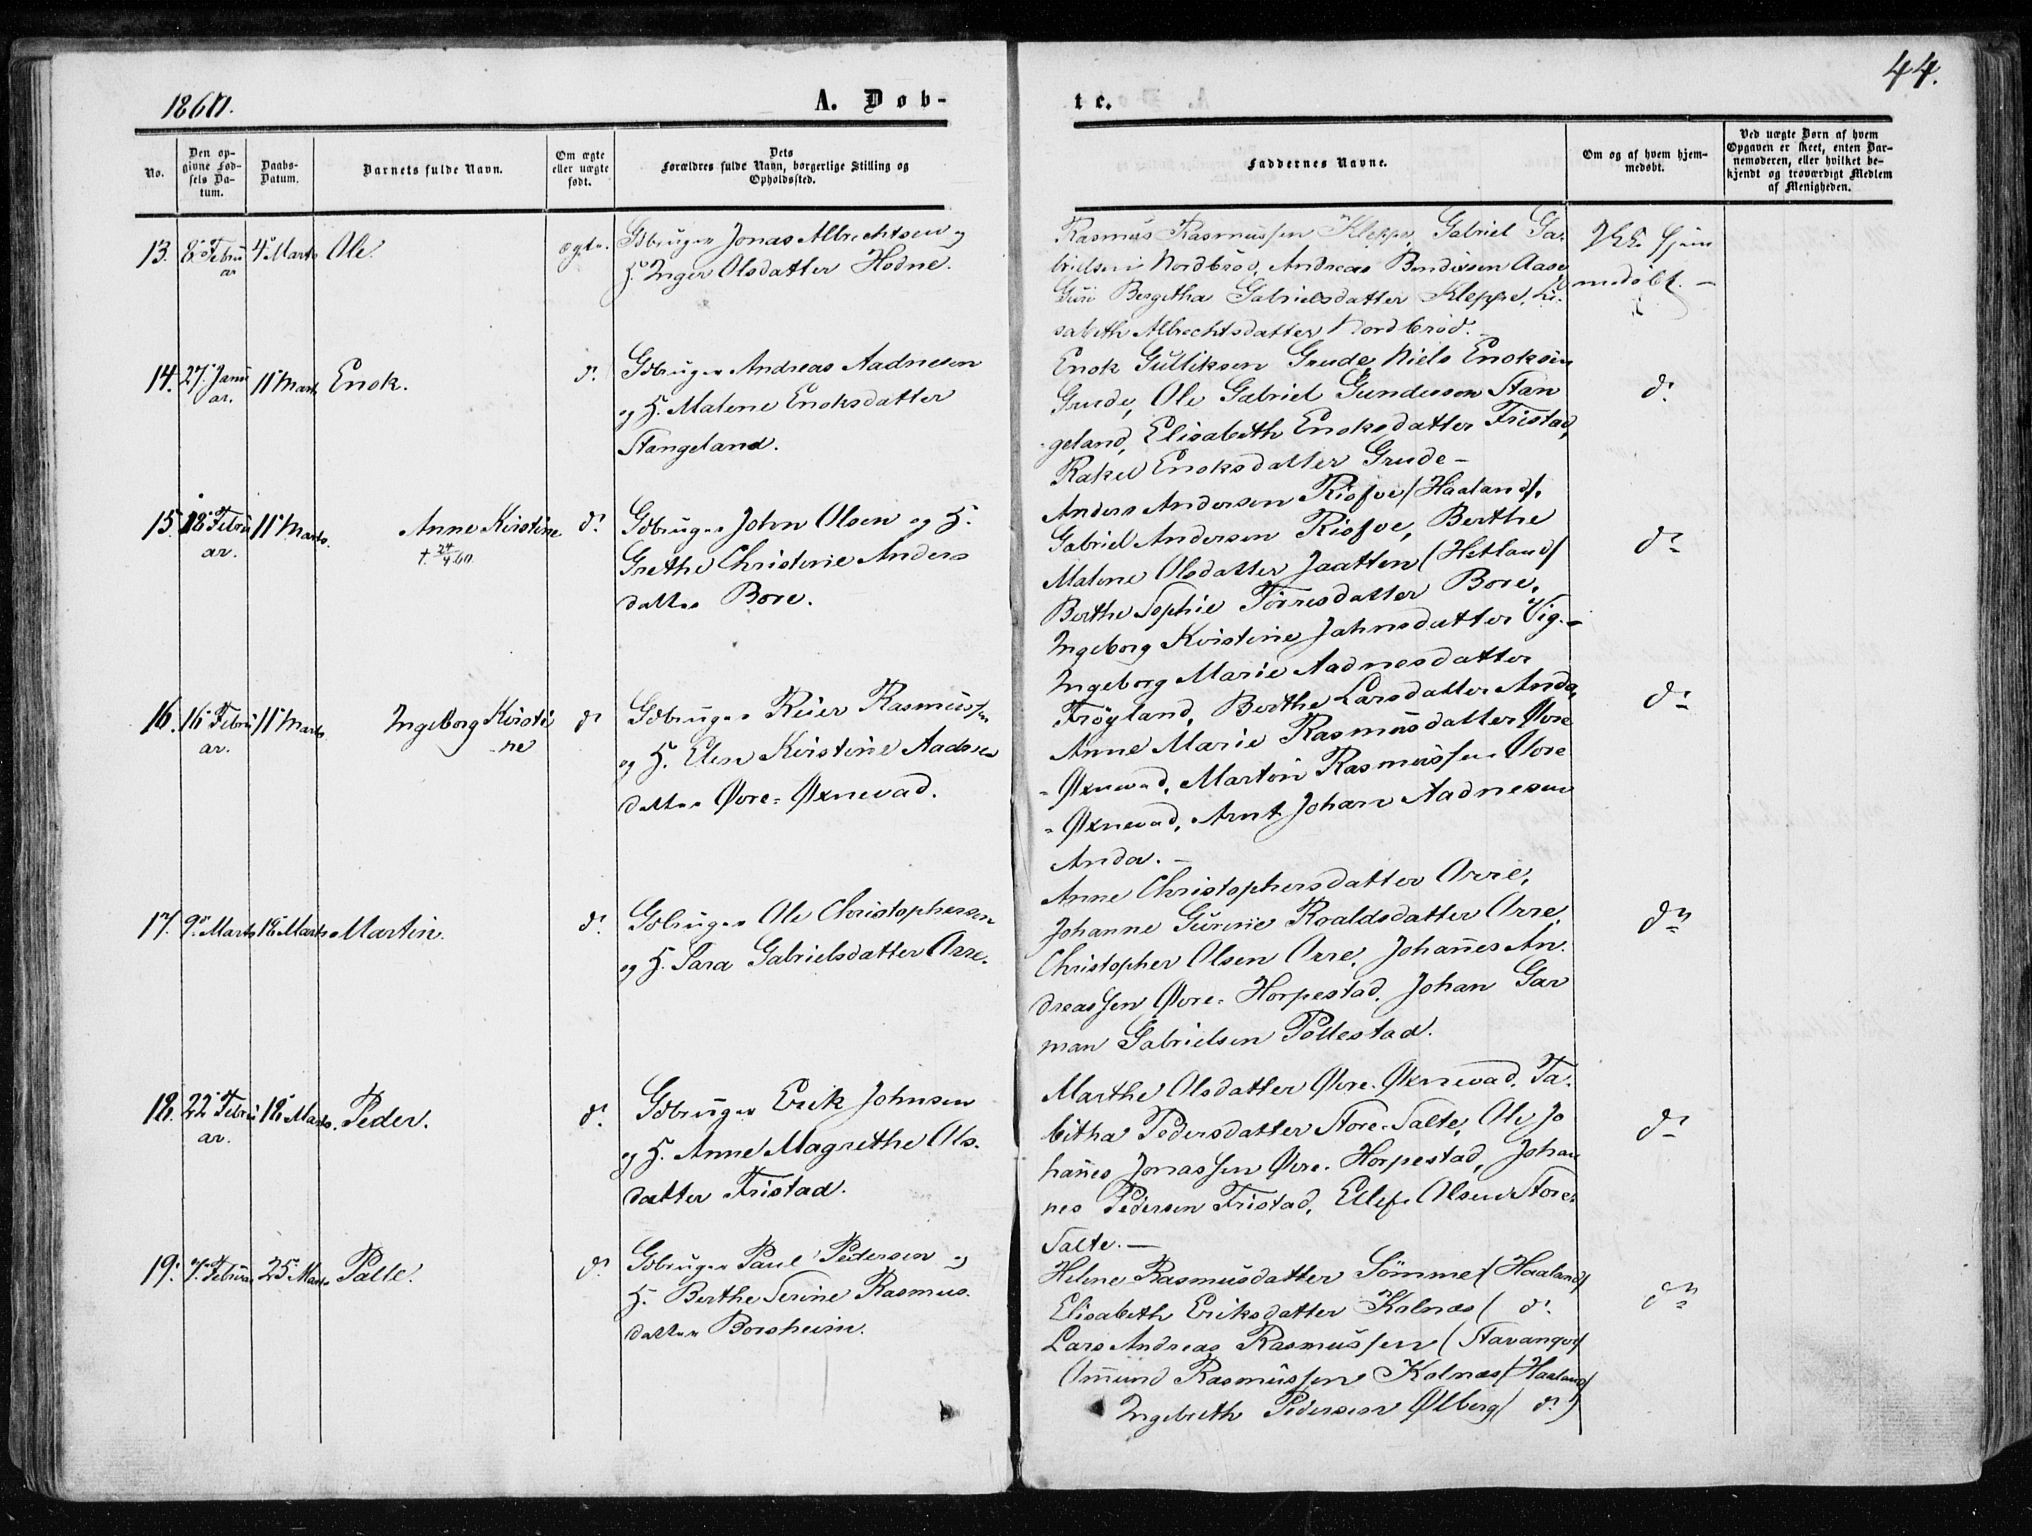 44.
1860.
A. Døb-
te.
No.
Den op-
givne Fød-
sels Da-
tum.
Daabs-
Datum.
Barnets fulde Navn.
Om ægte
eller uægte
født.
Dets
Forældres fulde Navn, borgerlige Stilling og
Opholdssted.
Faddernes Navne.
Om og af hvem hjem-
medøbt.
Ved uægte Børn af hvem
Opgaven er skeet, enten Bar-
nemoderen, eller hvilket be-
kjendt og troværdigt Medlem
af Menigheden.
13. 8de Febru
ar
4de Marts Ole. ægte. Gdbruger Jonas Albrechtsen og
H. Inger Olsdatter Hodne.
Rasmus Rasmussen Kleppe, Gabriel Ga-
brielsen Nordbrød, Andreas Bendixsen Aase
Guri Bergitha Gabrielsdatter Kleppe, Li-
sabeth Albrechtsdatter Nordbrød.
Ikke hjem
medøbt. –
14. 27. Janu
ar.
11te Marts Enok. do. Gdbruger Andreas Aadnesen
og H. Malene Enoksdatter
Stangeland.
Enok Gulliksen Grude, Niels Enoksen
Grude, Ole Gabriel Gundersen Stan
geland, Elisabeth Enoksdatter Fristad,
Rakel Enoksdatter Grude –
do.
15. 18de Febru
ar.
11te Marts. Anne Kirstine
† 24/4 60.
do. Gdbruger John Olsen og H.
Grethe Christine Anders
datter Bore.
Anders Andersen Risfoe (Haaland),
Gabriel Andersen Risfoe, Berthe
Malene Olsdatter Jaatten (Hetland)
Berthe Sophie Tørresdatter Bore,
Ingeborg Kristine Jahnsdatter Vig. –
do.
16. 16de Febru
ar.
11te Marts. Ingeborg Kirsti
-ne
do Gdbruger Reier Rasmussen
og H. Elen Kirstine Aadnes
datter Øvre-Øxnevad.
Ingeborg Marie Aadnesdatter
Frøyland, Berthe Larsdatter Anda,
Anne Marie Rasmusdatter Øvre
-Øxnevad, Martin Rasmussen Øvre
-Øxnevad, Arnt Johan Aadnesen
Anda. –
do.
17. 9de Marts 18de Marts Martin. do. Gdbruger Ole Christophersen
og H. Sara Gabrielsdatter Orre.
Anne Christophersdatter Orre,
Johanne Gurine Roaldsdatter Orre,
Christopher Olsen Orre, Johannes An-
dreassen Øvre-Horpestad, Johan Gar
man Gabrielsen Pollestad.
do.
18. 22de Febru
ar.
18de Marts. Peder. do. Gdbruger Erik Johnsen
og H. Anne Magrethe Ols-
datter Fristad.
Marthe Olsdatter Øvre-Øxnevad, Ta-
bitha Pedersdatter Store-Salte, Ole Jo
hannes Jonassen Øvre-Horpestad, Johan
nes Pedersen Fristad, Ellef Olsen Store-
Salte. –
do.
19. 7de Februar 25de Marts Palle. do. Gdbruger Paul Pedersen og
H. Berthe Serine Rasmus-
datter Borsheim.
Helene Rasmusdatter Sømme (Haaland)
Elisabeth Eriksdatter Kolnæs ( do.
Lars Andreas Rasmussen (Stavanger)
Omund Rasmussen Kolnæs (Haaland)
Ingebreth Pedersen Ølberg ( do.)
do.